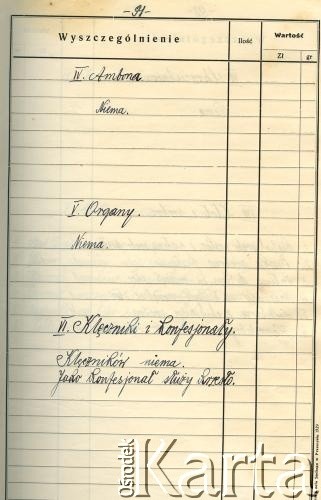 - 91 -
Wyszczególnienie
Ilość
Wartość
Zł
gr
IV. Ambona
Niema.
V. Organy.
Niema.
VI. Klęczniki i konfesjonały.
Klęczników niema.
Jako konfesjonał służy krzesło.
Ośrodek
Karta